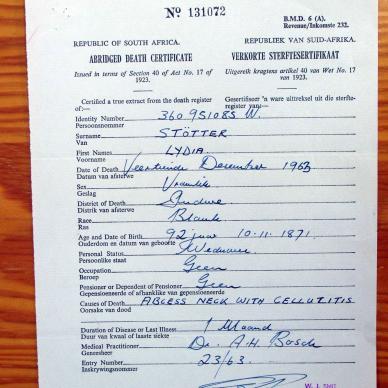 Nº 131072
B.M.D. 6 (A).
Revenue/Inkomste 232.
REPUBLIC OF SOUTH AFRICA. REPUBLIEK VAN SUID-AFRIKA.
ABRIDGED DEATH CERTIFICATE VERKORTE STERFTESERTIFIKAAT
Issued in terms of Section 40 of Act No. 17 of 1923. Uitgereik kragtens artikel 40 van Wet No. 17 van 1923.
Certified a true extract from the death register of:— Gesertifiseer 'n ware uittreksel uit die sterfteregister van:—
Identity Number 360951085 W.
Persoonsnommer
Surname STÖTTER
Van
First Names LYDIA
Voorname
Date of Death Veertiende Desember 1963
Datum van afsterwe
Sex Vroulik
Geslag
District of Death
Distrik van afsterwe
Race Blank
Ras
Age and Date of Birth 92 jaar 10-11-1871.
Ouderdom en datum van geboorte
Personal Status Weduwee
Persoonlike staat
Occupation Geen
Beroep
Pensioner or Dependent of Pensioner Geen
Gepensioeneerde of afhanklike van gepensioeneerde
Causes of Death ABCESS NECK WITH CELLULITIS
Oorsake van dood
Duration of Disease or Last Illness 1 Maand
Duur van kwaal of laaste siekte
Medical Practitioner Dr. A.H. Bosch
Geneesheer
Entry Number 23/63.
Inskrywingsnommer